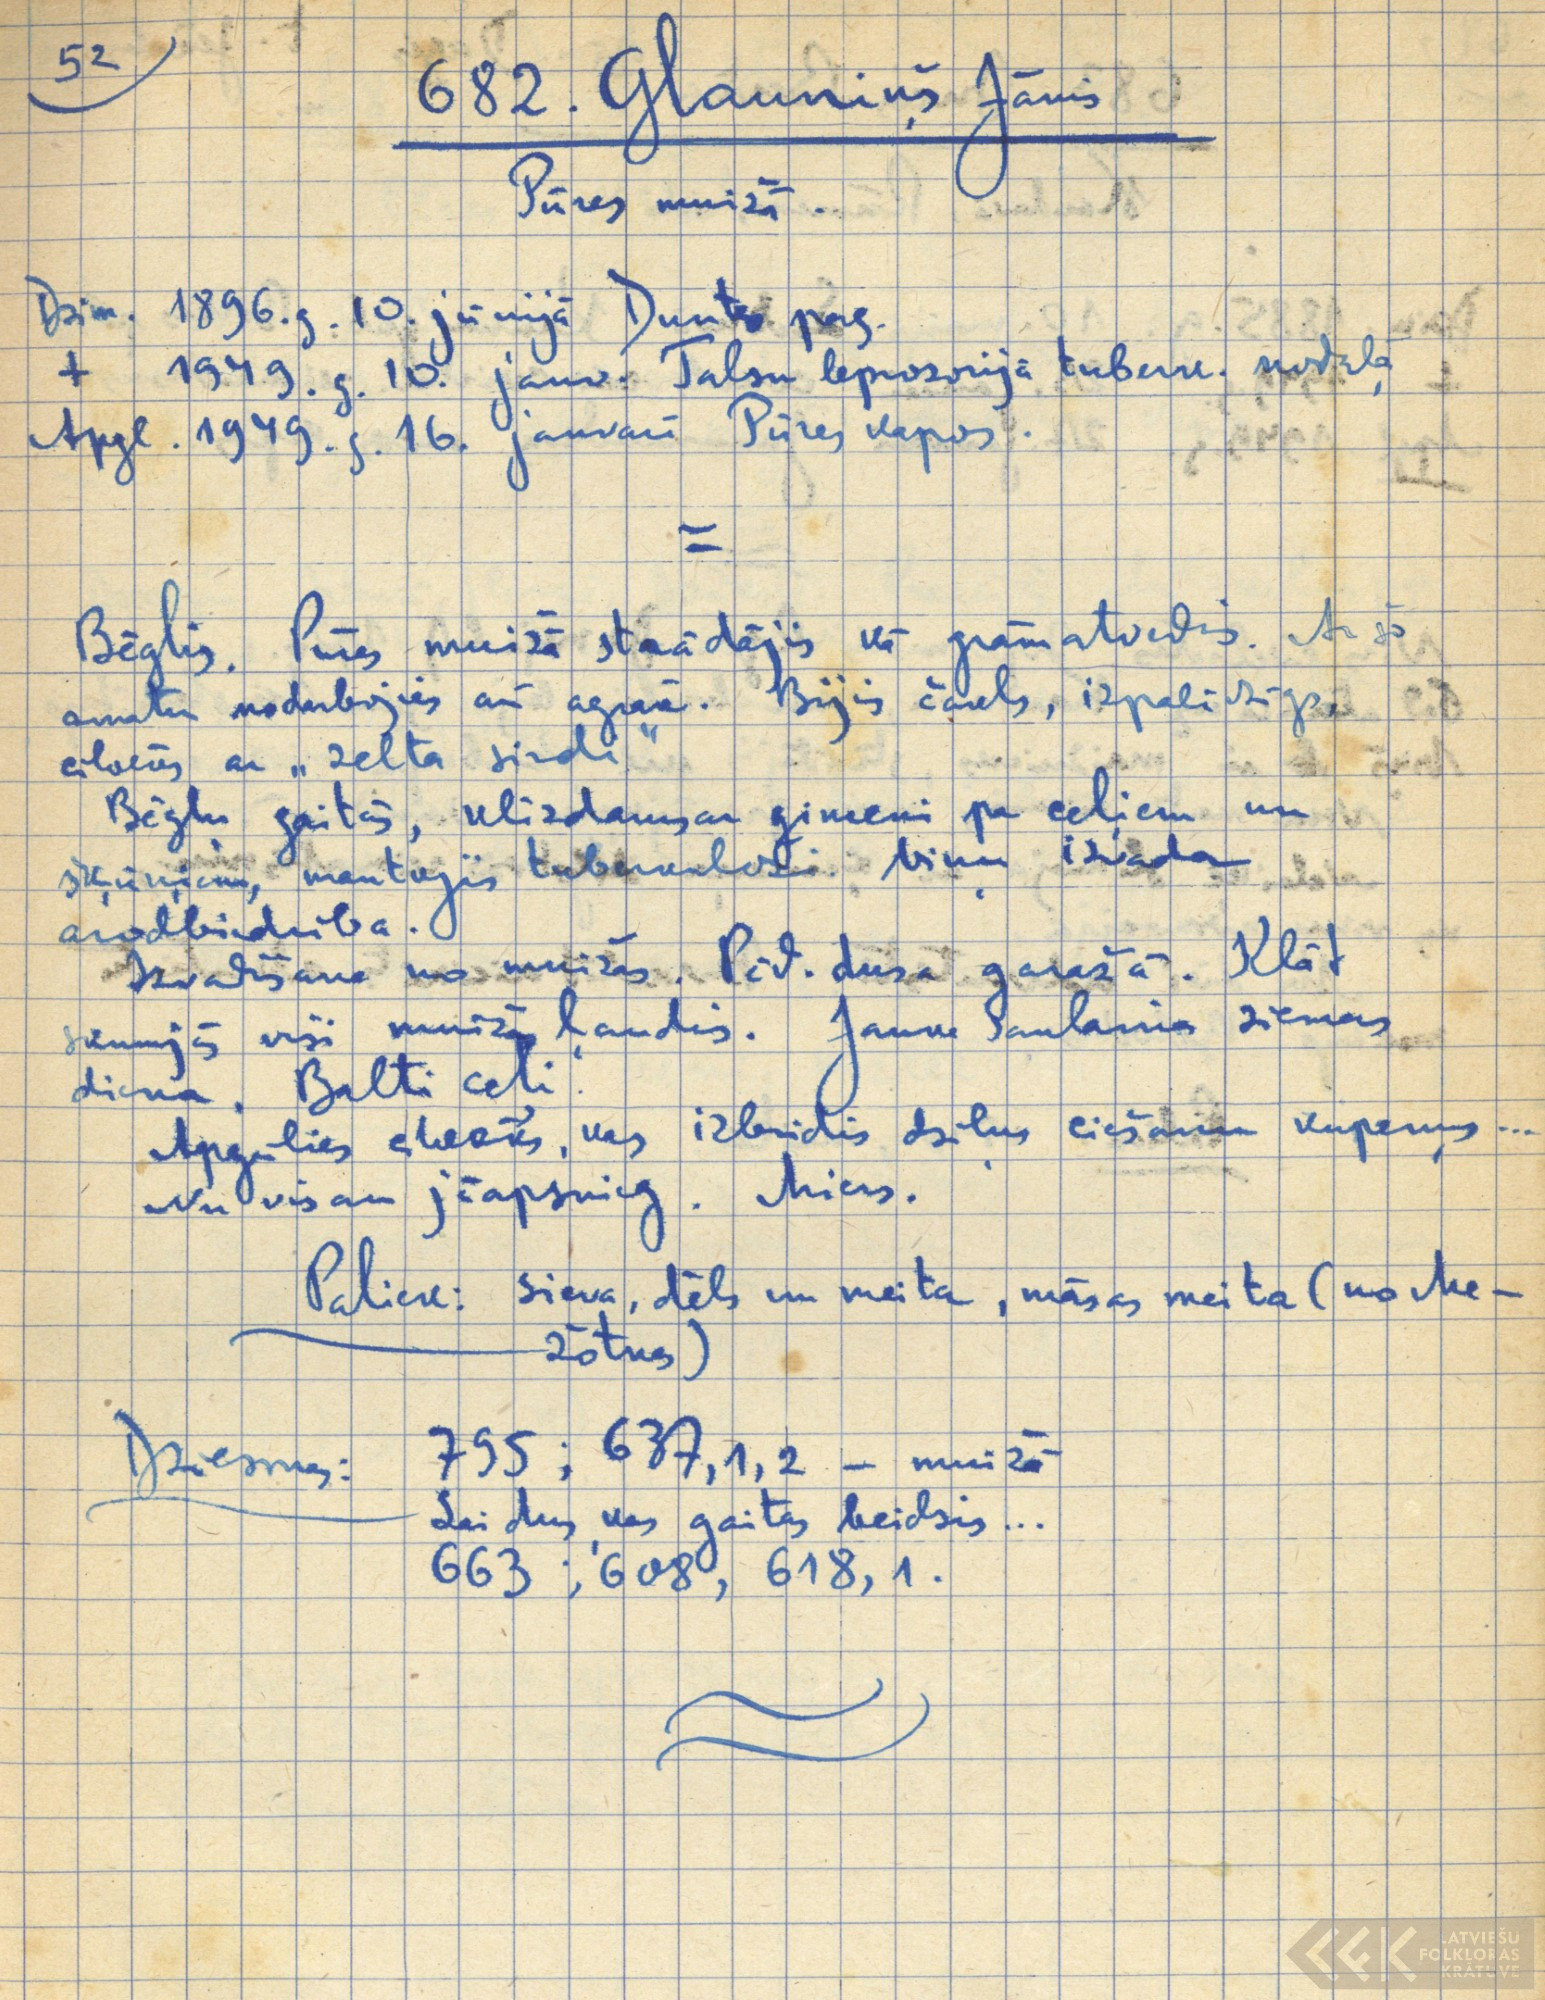 52
682. Glauniņš Jānis
Pūres muižā.
Dzim. 1896.g. 10. jūnijā Duntes pag.
+ 1949.g. 10. janv. Talsu leprozorijā tuberk. nodaļā
Apgl. 1949.g. 16. janvarī Pūres kapos.
=
Bēglis. Pūres muižā strādājis kā grāmatvedis. Ar šo
amatu nodarbojies arī agrāk. Bijis čakls, izpalīdzīgs,
cilvēks ar „zelta sirdi"
Bēgļu gaitās, klīzdams ar ģimeni pa ceļiem un
šķūņiem, mantojis tuberkulozi. Viņu izvada
arodbiedrība.
Izvadīšana no muižas. Pēd. dusa garažā. Klāt
skumjās visi muižas ļaudis. Jauka saulaina ziemas
diena. Balti ceļi.
Apgūlies cilvēks, kas izbridis dziļus ciešanu kupenus...
Nu visam jāapsnieg. Miers.
Paliek: sieva, dēls un meita, māsas meita (no Me-
žotnes)
Dziesmas: 795; 637,1,2 – muižā
Lai dus, kas gaitas beidzis...
663; 608, 618,1.
LATVIEŠU
FOLKLORAS
KRĀTUVE